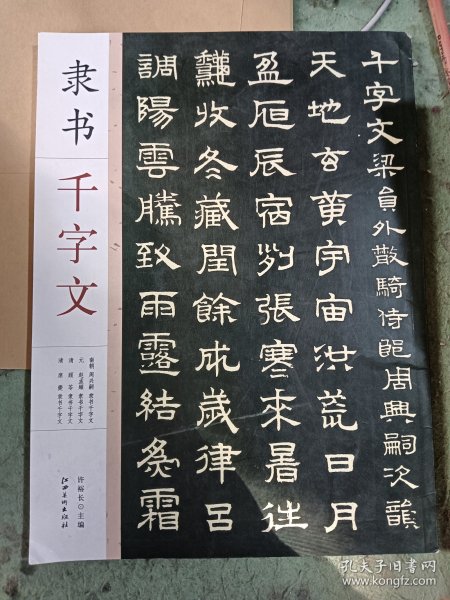 隶书
千字文
南朝 周兴嗣 隶书千字文
元 赵孟頫 隶书千字文
清 顾苓 隶书千字文
清 席夔 隶书千字文
许裕长⊙主编
江西美术出版社
千字文梁員外散騎侍郎周興嗣次韻
天地玄黃宇宙洪荒日月
盈昃辰宿列張寒來暑往
秋收冬藏閏餘成歲律呂
調陽雲騰致雨露結為霜
孔夫子旧书网
www.kongfz.com